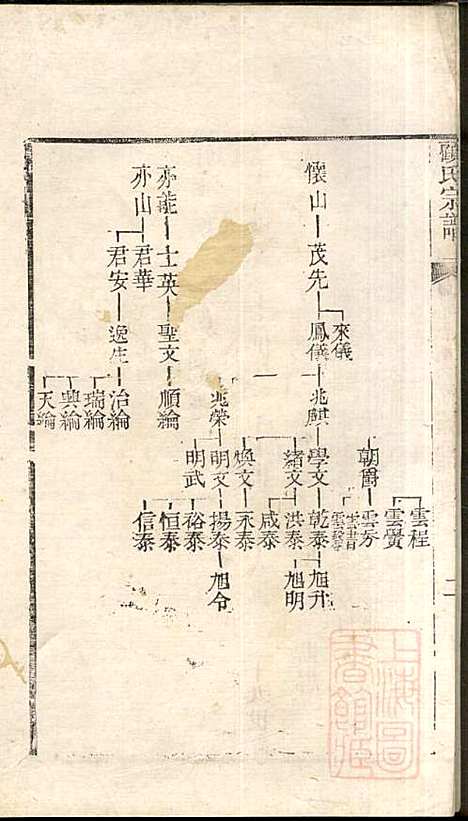 顧氏宗譜
二
雲程
雲賢
朝爵 雲芳
來儀
懷山 茂先 鳳儀 兆麒 學文 乾泰 旭升
緒文 洪泰 旭明
咸泰
煥文 永泰
兆榮 明文 揚泰 旭令
裕泰
明武 恒泰
信泰
亦龍 士英 聖文 順綸
亦山 君華
君安 逸生 治綸
瑞綸
興綸
天綸
上海圖書館藏